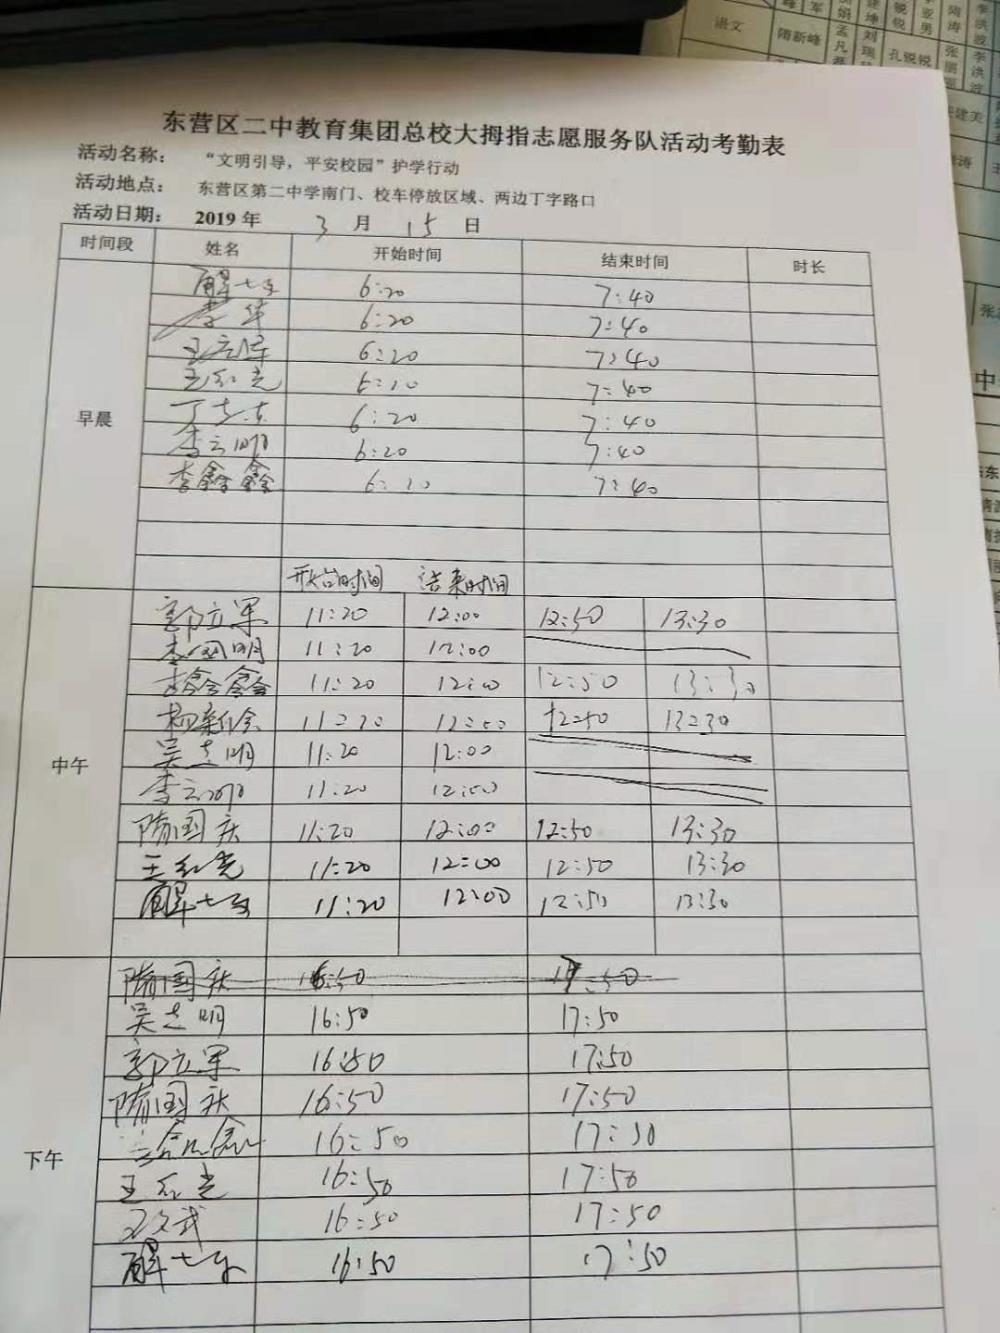 语文
隋新峰
孔锐锐
东营区二中教育集团总校大拇指志愿服务队活动考勤表
活动名称： “文明引导，平安校园”护学行动
活动地点： 东营区第二中学南门、校车停放区域、两边丁字路口
活动日期： 2019 年 3 月 15 日
时间段 姓名 开始时间 结束时间 时长
早晨
6:20 7:40
李华 6:20 7:40
6:20 7:40
王红光 6:10 7:40
6:20 7:40
李云鹏 6:20 7:40
李鑫鑫 6:10 7:40
开始时间 结束时间
中午
郭立军 11:20 12:00 12:50 13:30
11:20 12:00
李鑫鑫 11:20 12:00 12:50 13:30
11:20 12:00 12:50 13:30
吴志明 11:20 12:00
李云鹏 11:20 12:00
隋国庆 11:20 12:00 12:50 13:30
王红光 11:20 12:00 12:50 13:30
11:20 12:00 12:50 13:30
下午
隋国庆 16:50 17:50
吴志明 16:50 17:50
郭立军 16:50 17:50
隋国庆 16:50 17:50
16:50 17:50
王红光 16:50 17:50
16:50 17:50
16:50 17:50